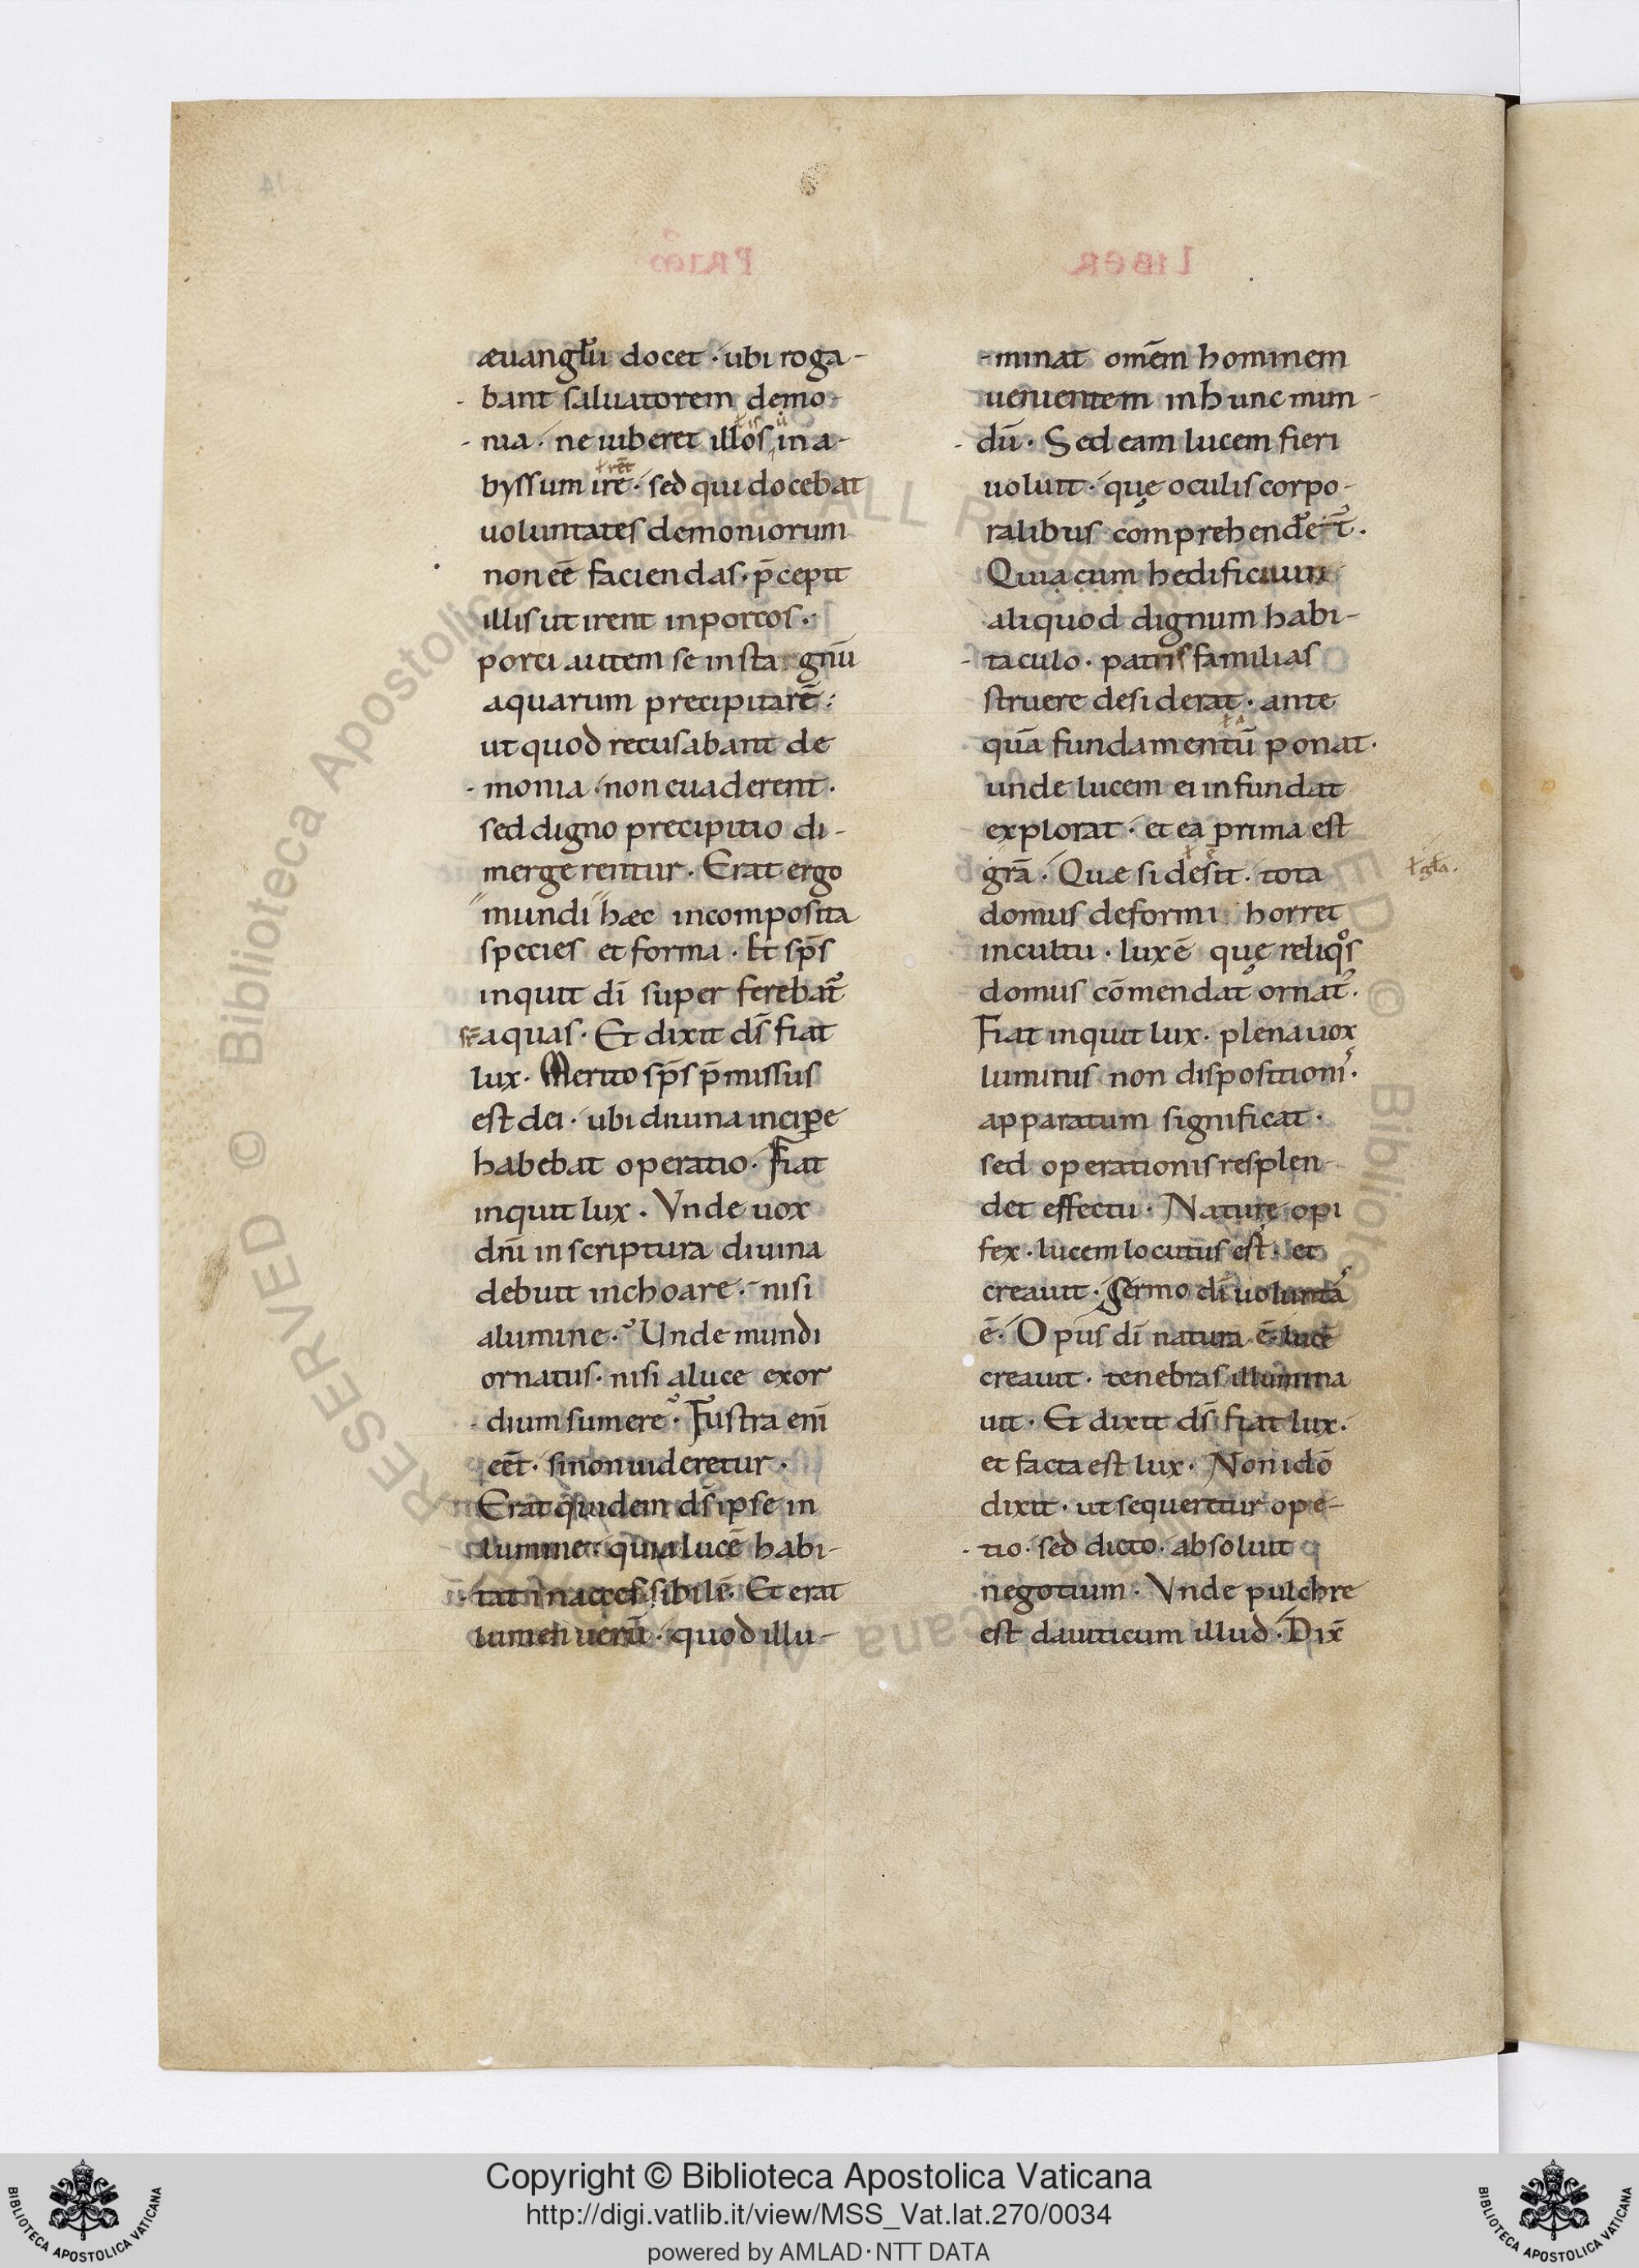 æuangłıū docet · ubi roga-
bant saluatorem demo-
nia · ne iuberet illos in a-
byssum ire · sed qui docebat
uoluntates demoniorum
non eē faciendas · p̄cepit
illis ut irent in porcos ·
porci autem se in sta gnū
aquarum precipitarē ·
ut quod recusabant de
monia · non euaderent ·
sed digno precipitio di-
mergerentur · Erat ergo
mundi hæc incomposita
species et forma · Et sp̄s
inquit dī super ferebat᷒
aquas · Et dixit dš fiat
lux · Merito sp̄s p̄missus
est dei · ubi diuina incipe
habebat operatio · Fiat
inquit lux · Vnde uox
dnī in scriptura diuina
debuit inchoare · nisi
alumine · Unde mundi
ornatus · nisi aluce exor
dium sumere · Fustra enī
eēt · si non uideretur ·
Erat quidem dš ipse in
lumine · quia lucē habi-
tat inaccessibilē · Et erat
lumen uerū · quod illu-
minat omēm hominem
uenientem in hunc mun-
dū · Sed eam lucem fieri
uoluit · quę oculis corpo-
ralibus comprehenderet᷒ ·
Quia cum hedificium
aliquod dignum habi-
taculo · patris familias
struere desiderat · ante
quā fundamentū ponat ·
unde lucem ei infundat
explorat · et ea prima est
grā · Quæ si desit · tota
ł gła ·
domus deformi horret
incultu · lux ē quę reliqos
domus cōmendat ornat᷒ ·
Fiat inquit lux · plena uox
luminis non dispositioni᷒ ·
apparatum significat ·
sed operationis resplen-
det effectu · Naturę opi
fex · lucem locutus est · et
creauit · Sermo dī uolunta᷒
ē · Opus dī natura ē · lucē
creauit · tenebras illumina
uit · Et dixit dš fiat lux ·
et facta est lux · Non idō
dixit · ut sequeretur ope-
tio · sed dicto · absoluit
negotium · Vnde pulchre
est dauiticum illud · Dix̄
Copyright © Biblioteca Apostolica Vaticana
http://digi.vatlib.it/view/MSS_Vat.lat.270/0034
powered by AMLAD·NTT DATA
BIBLIOTECA APOSTOLICA VATICANA
BIBLIOTECA APOSTOLICA VATICANA